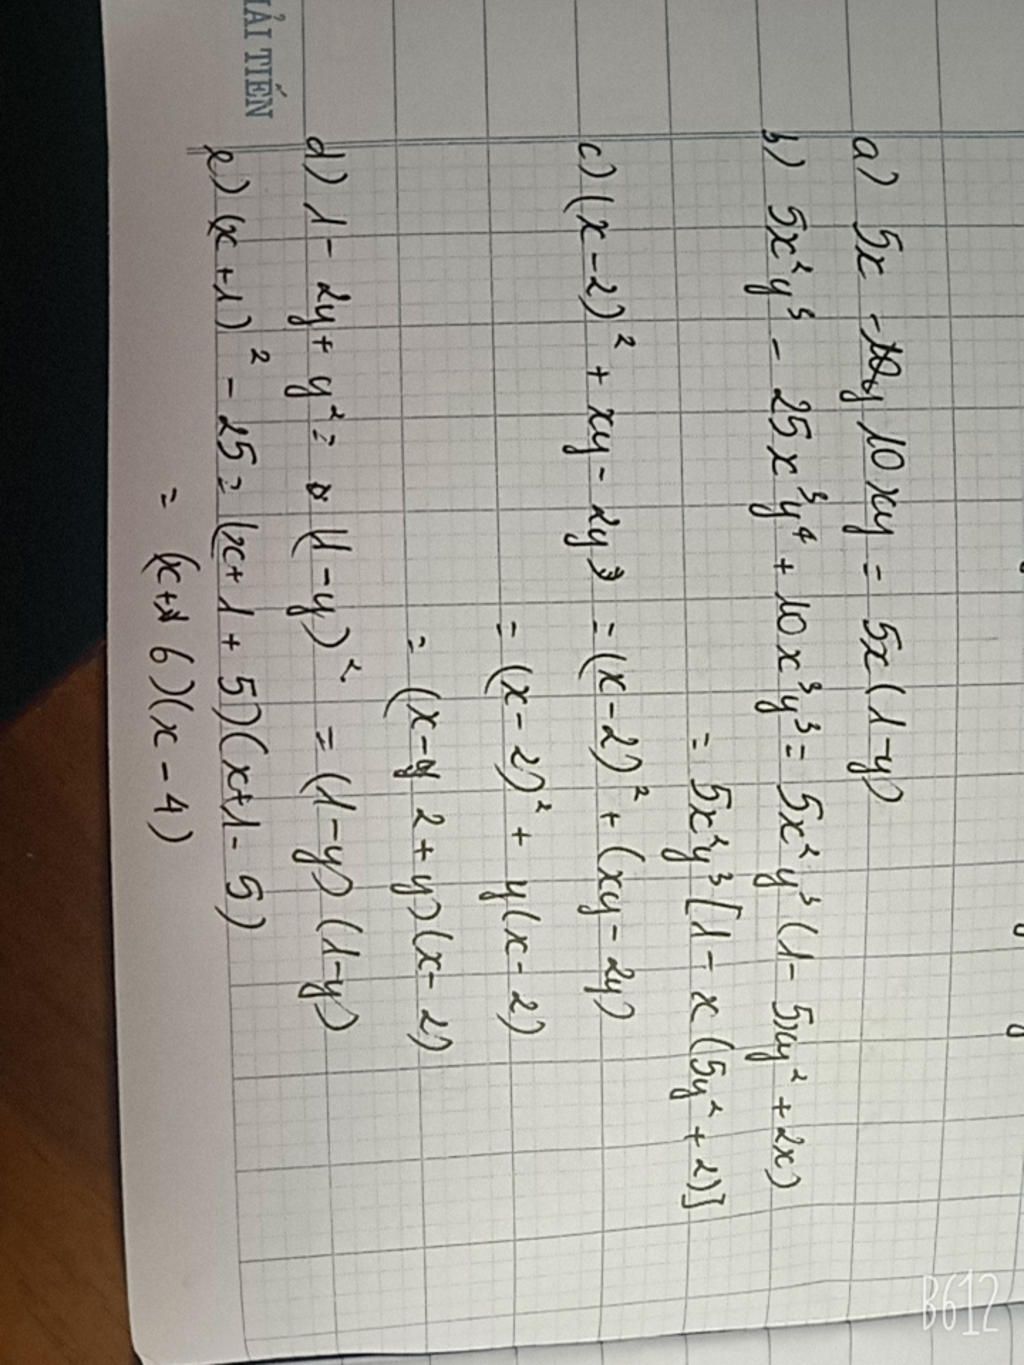 ẢI TIẾN
a) 5x - 10xy = 5x(1-y)
b) 5x²y³ - 25x³y⁴ + 10x³y³ = 5x²y³(1 - 5xy² + 2x)
= 5x²y³[1 - x(5y² + 2)]
c) (x-2)² + xy - 2y = (x-2)² + (xy - 2y)
= (x-2)² + y(x-2)
= (x-2+y)(x-2)
d) 1 - 2y + y² = (1-y)² = (1-y)(1-y)
e) (x+1)² - 25 = (x+1+5)(x+1-5)
= (x+6)(x-4)
B612